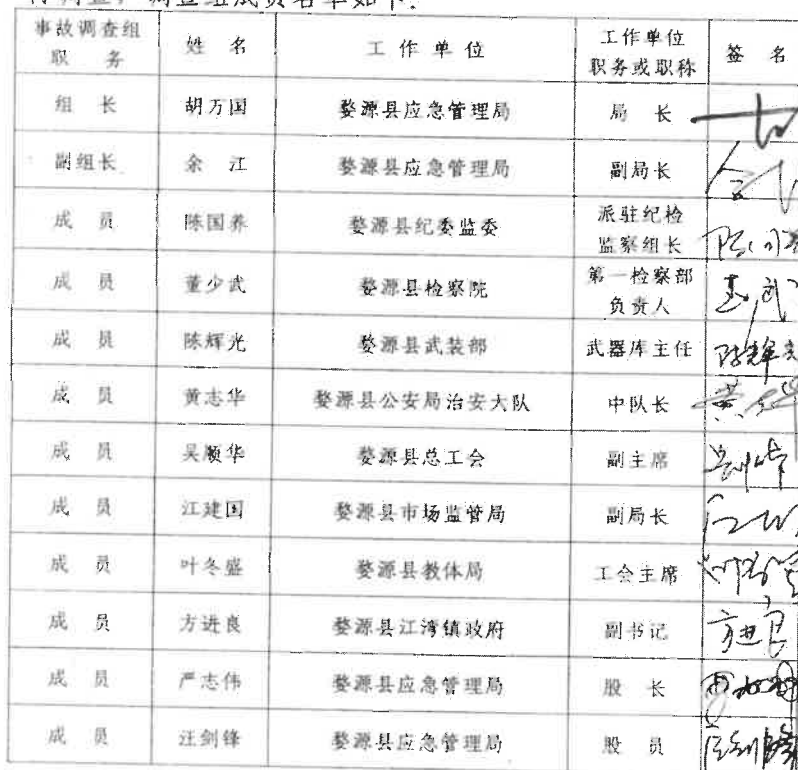 调查组成员名单如下:
事故调查组
职 务
姓 名
工 作 单 位
工作单位
职务或职称
签 名
组 长 胡万国 婺源县应急管理局 局 长
副组长 余 江 婺源县应急管理局 副局长
成 员 陈国养 婺源县纪委监委 派驻纪检
监察组长
成 员 董少武 婺源县检察院 第一检察部
负责人
成 员 陈辉光 婺源县武装部 武器库主任
成 员 黄志华 婺源县公安局治安大队 中队长
成 员 吴顺华 婺源县总工会 副主席
成 员 江建国 婺源县市场监管局 副局长
成 员 叶冬盛 婺源县教体局 工会主席
成 员 方进良 婺源县江湾镇政府 副书记 方进良
成 员 严志伟 婺源县应急管理局 股 长
成 员 汪剑锋 婺源县应急管理局 股 员 汪剑锋